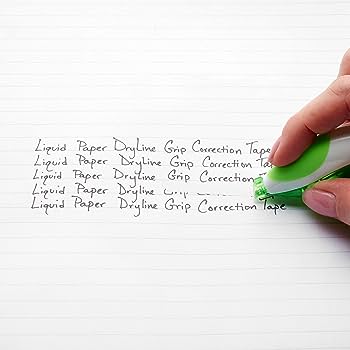 Liquid Paper DryLine Grip Correction Tape
Liquid Paper DryLine Grip Correction Tape
Liquid Paper Dryline Grip Correction
Liquid Paper Dryline
Liquid Paper Dryline Grip Correction Tape